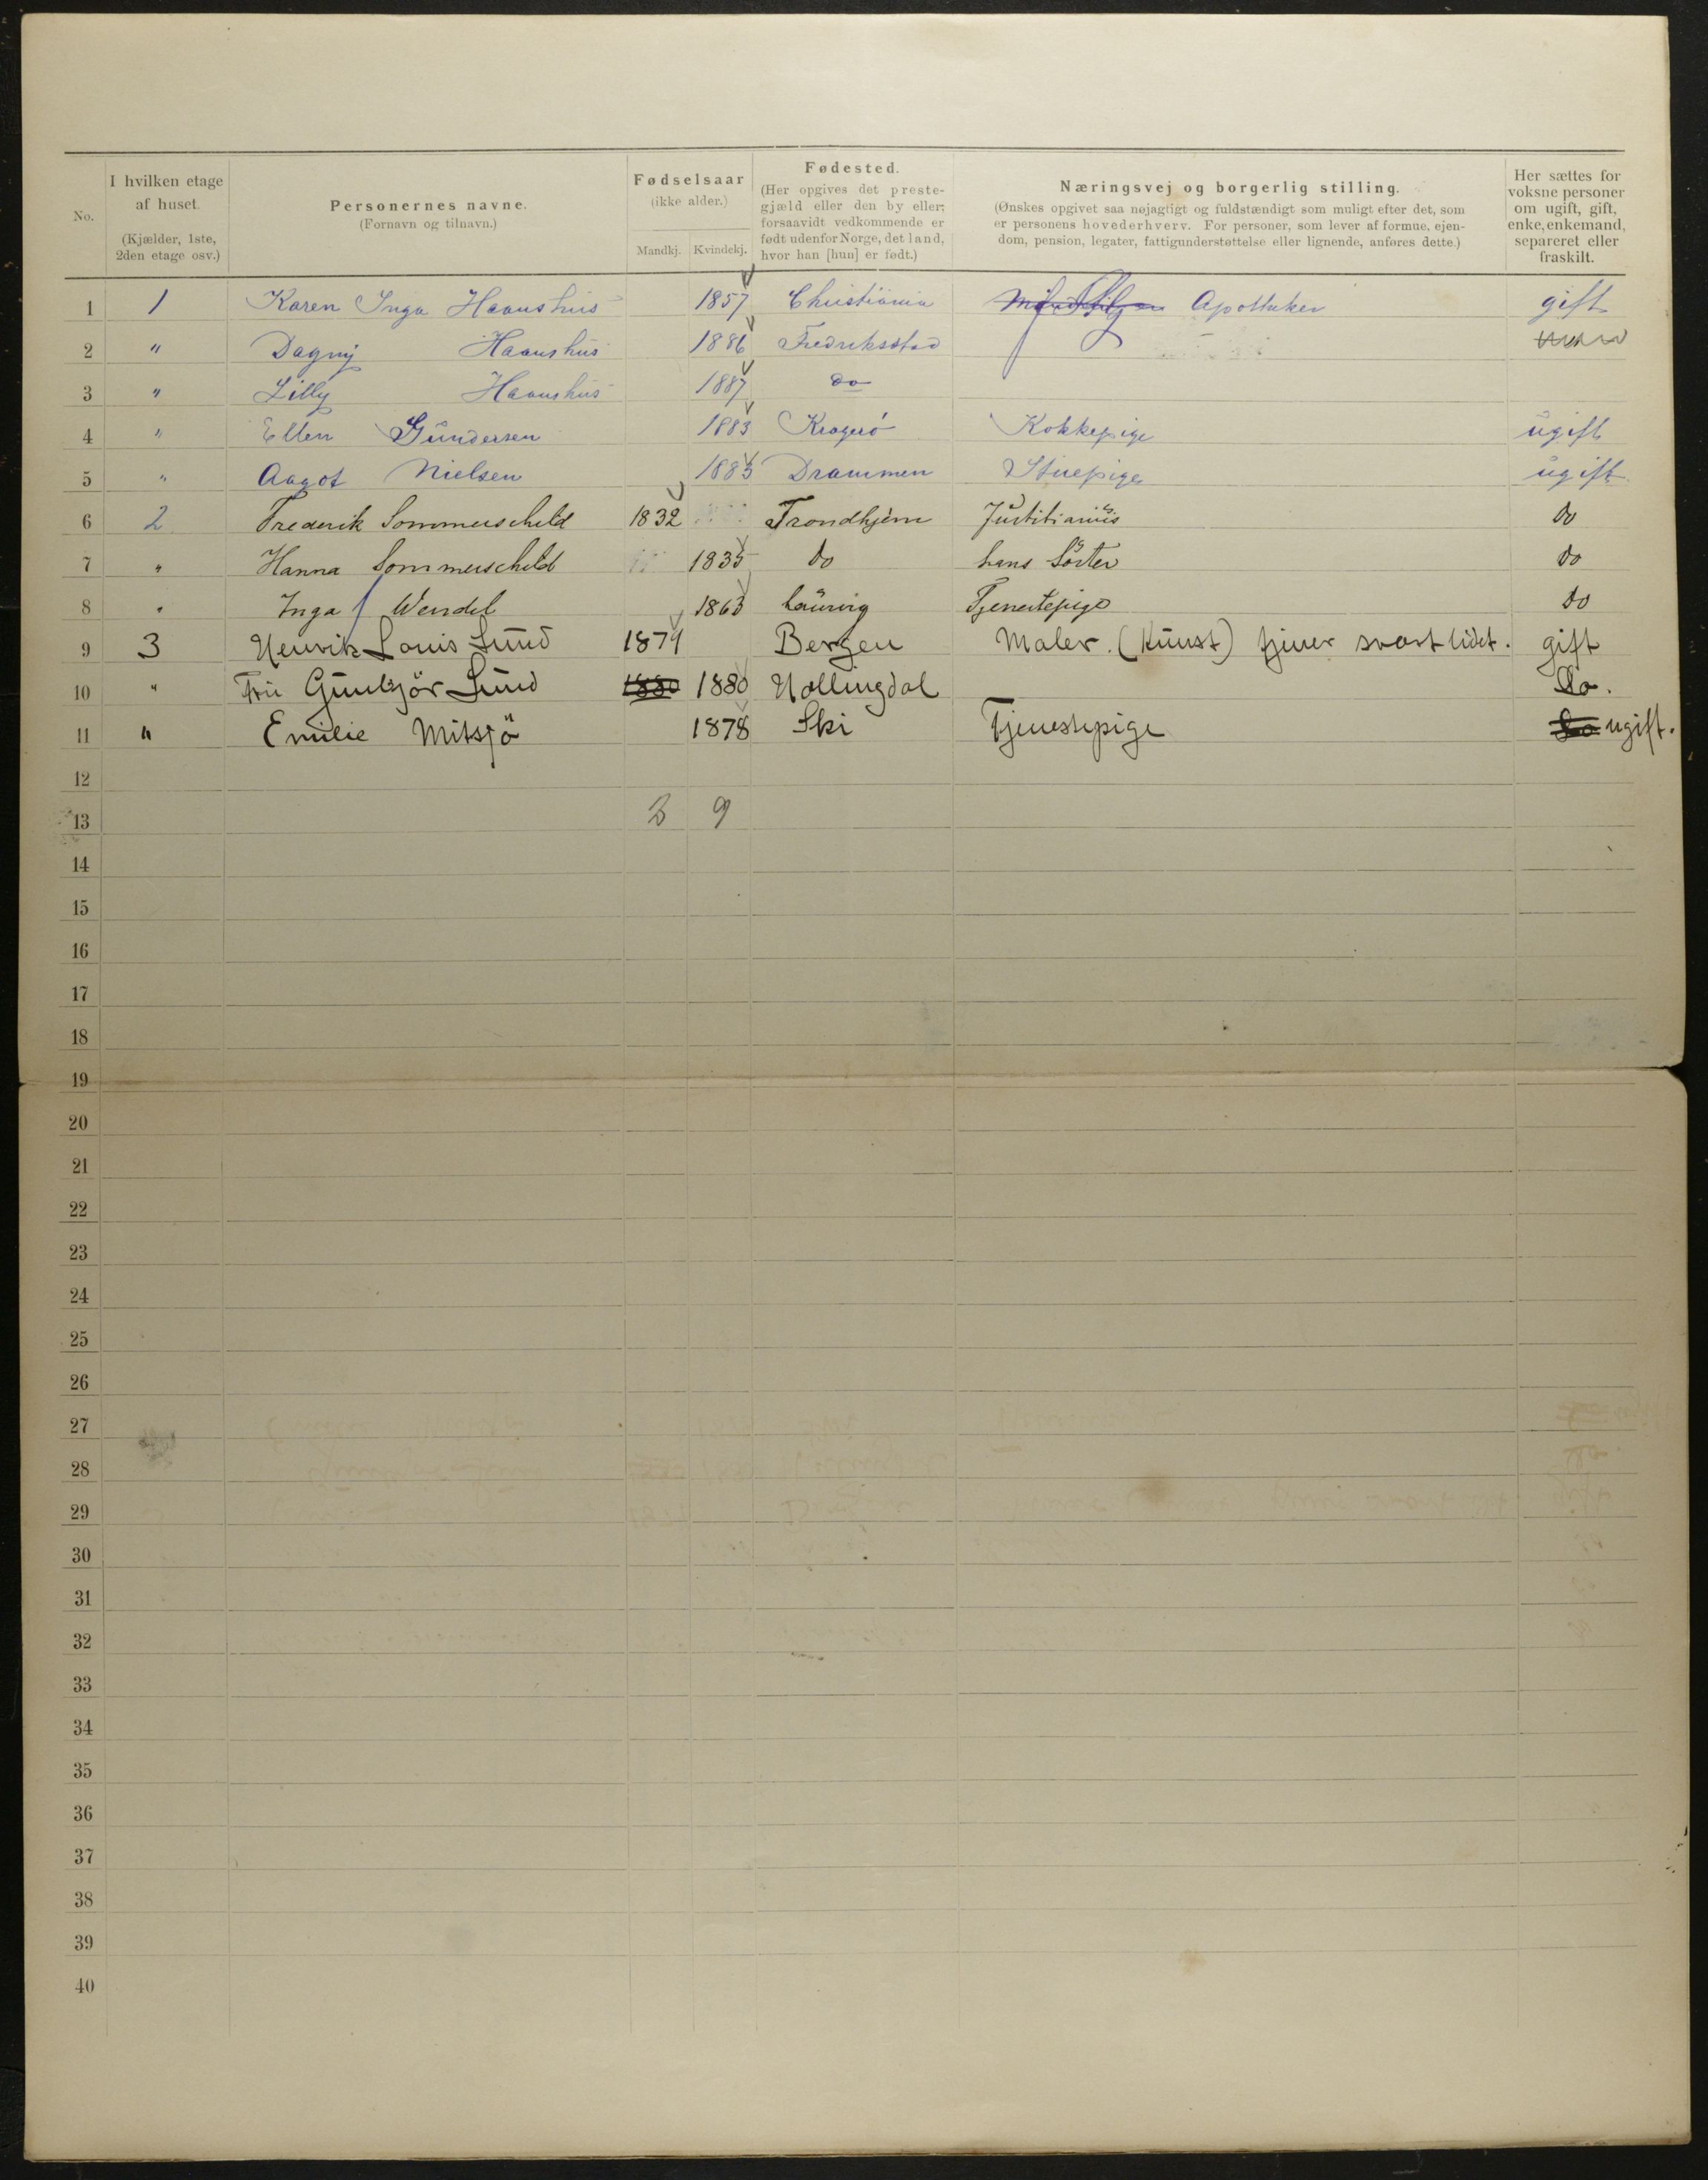 No.
I hvilken etage
af huset.
(Kjælder, 1ste,
2den etage osv.)
Personernes navne.
(Fornavn og tilnavn.)
Fødselsaar
(ikke alder.)
Mandkj. Kvindekj.
Fødested.
(Her opgives det preste-
gjæld eller den by eller,
forsaavidt vedkommende er
født udenfor Norge, det land,
hvor han [hun] er født.)
Næringsvej og borgerlig stilling.
(Ønskes opgivet saa nøjagtigt og fuldstændigt som muligt efter det, som
er personens hovederhverv. For personer, som lever af formue, ejen-
dom, pension, legater, fattigunderstøttelse eller lignende, anføres dette.)
Her sættes for
voksne personer
om ugift, gift,
enke, enkemand,
separeret eller
fraskilt.
1 1 Karen Inga Haanshus 1857 Christiania Apotheker gift
2 " Dagny Haanshus 1886 Fredriksstad
3 " Lilly Haanshus 1887 do
4 " Ellen Gundersen 1883 Kragerö Kokkepige ugift
5 " Aagot Nielsen 1883 Drammen Stuepige ugift
6 2 Frederik Sommerscheld 1832 Trondhjem Justitiarius do
7 " Hanna Sommerscheld 1835 do hans Söster do
8 " Inga Wendel 1863 Laurvig Tjenestepige do
9 3 Henrik Louis Lund 1879 Bergen Maler. (Kunst) tjener svært lidet. gift
10 " Fru Gunbjör Lund 1880 1880 Hallingdal Do.
11 " Emilie Mitsjö 1878 Ski Tjenestepige Do ugift.
12
13 2 9
14
15
16
17
18
19
20
21
22
23
24
25
26
27
28
29
30
31
32
33
34
35
36
37
38
39
40